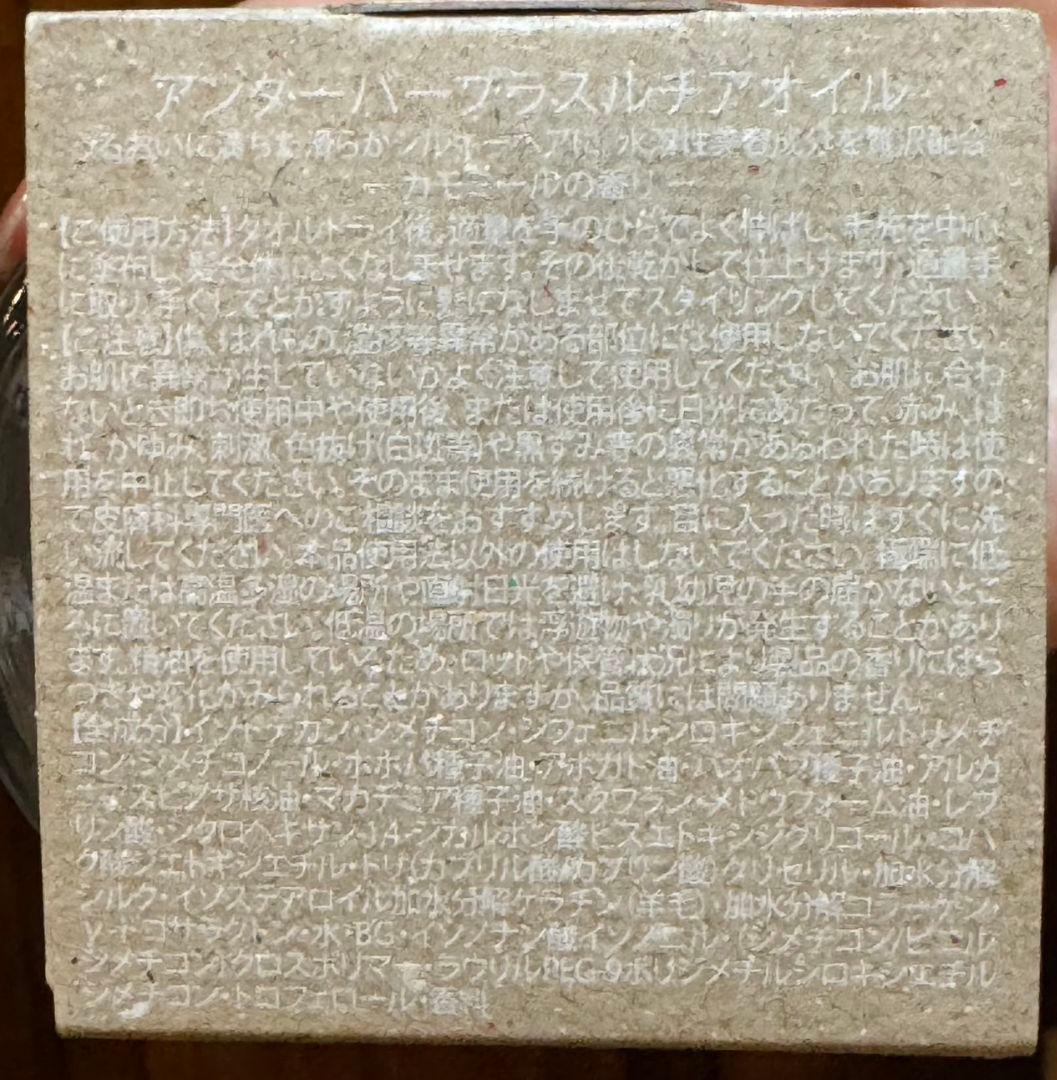 アンターバープラスルチアオイル
カモミールの香り
【ご使用方法】タオルドライ後、適量を手のひらでよく伸ばし、毛先を中心
に塗布し、髪全体によくなじませます。その後乾かして仕上げます。適量手
に取り、手ぐしでとかすように髪になじませてスタイリングしてください。
【ご注意】傷、はれもの、湿疹等異常がある部位には使用しないでください。
お肌に異常が生じていないかよく注意して使用してください。お肌に合わ
ないとき即ち使用中や使用後、または使用後に日光にあたって、赤み、は
れ、かゆみ、刺激、色抜け(白斑等)や黒ずみ等の異常があらわれた時は使
用を中止してください。そのまま使用を続けると悪化することがありますの
で皮膚科専門医へのご相談をおすすめします。目に入った時はすぐに洗
い流してください。本品使用法以外の使用はしないでください。極端に低
温または高温多湿の場所や直射日光を避け、乳幼児の手の届かないとこ
ろに置いてください。低温の場所では浮遊物や濁りが発生することがあり
ます。精油を使用しているため、ロットや保管状況により製品の香りにばら
つきや変化がみられることがありますが、品質には問題ありません。
【全成分】イソドデカン・ジメチコン・ジフェニルシロキシフェニルトリメチ
コン・ジメチコノール・ホホバ種子油・アボカド油・バオバブ種子油・アルガ
ニアスピノサ核油・マカデミア種子油・スクワラン・メドウフォーム油・レブ
リン酸・シクロヘキサン-1,4-ジカルボン酸ビスエトキシジグリコール・コハ
ク酸ジエトキシエチル・トリ(カプリル酸/カプリン酸)グリセリル・加水分解
シルク・イソステアロイル加水分解ケラチン(羊毛)・加水分解コラーゲン・
γ-ドコサラクトン・水・BG・イソノナン酸イソノニル・(ジメチコン/ビニル
ジメチコン)クロスポリマー・ラウリルPEG-9ポリジメチルシロキシエチル
ジメチコン・トコフェロール・香料